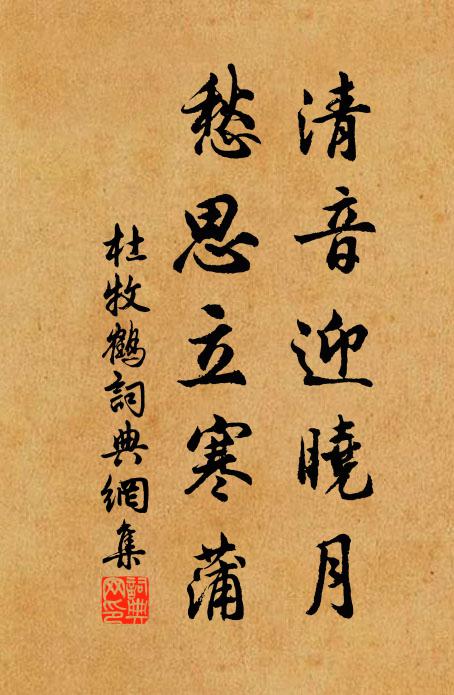 清音迎曉月
愁思立寒蒲
杜牧鶴詞典網集
詞典
网印